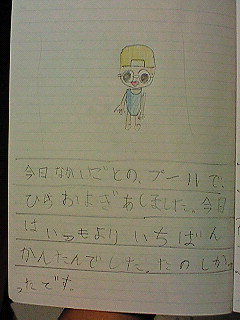 今日なかいごとの、プールで、
ひらおよぎおしました。今日
は いつもより いちばん
かんたんでした。たのしか
ったです。